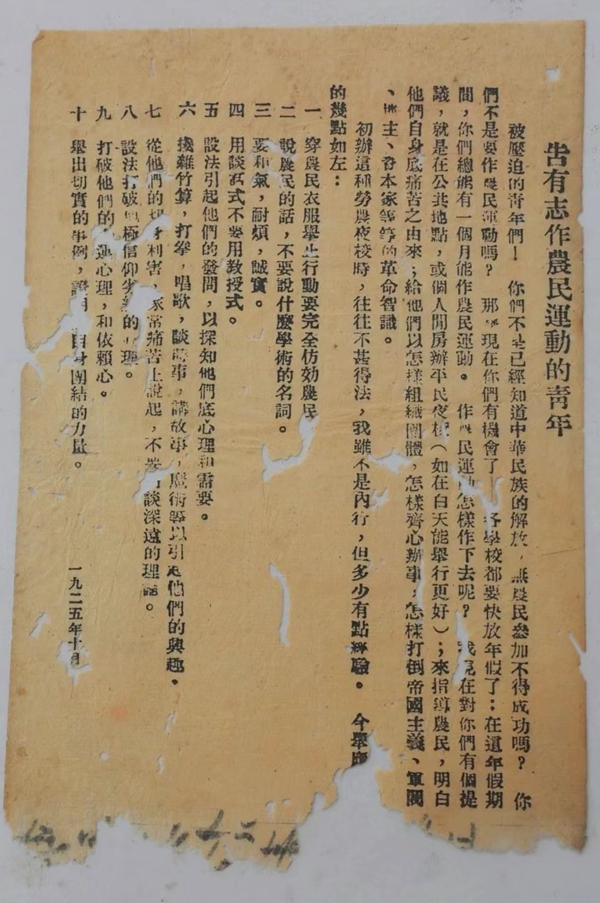 告有志作農民運動的青年
被壓迫的青年們！ 你們不是已經知道中華民族的解放，無農民參加不得成功嗎？ 你
們不是要作農民運動嗎？ 那麼現在你們有機會了 各學校都要快放年假了：在這年假期
間，你們總能有一個月能作農民運動。 作農民運動怎樣作下去呢？ 我現在對你們有個提
議，就是在公共地點，或個人閒房辦平民夜校（如在白天能舉行更好）；來指導農民，明白
他們自身底痛苦之由來；給他們以怎樣組織團體，怎樣齊心辦事，怎樣打倒帝國主義、軍閥
、地主、資本家等等的革命智識。
初辦這種勞農夜校時，往往不甚得法，我雖不是內行，但多少有點經驗。 今舉應
的幾點如左：
一 穿農民衣服舉止行動要完全仿効農民
二 說農民的話，不要說什麼學術的名詞。
三 要和氣，耐煩，誠實。
四 用談話式不要用教授式。
五 設法引起他們的發問，以探知他們底心理和需要。
六 找雜竹算，打拳，唱歌，談 事，講故事，魔術等以引起他們的興趣。
七 從他們的切身利害，家常痛苦上說起，不要 談深遠的理論。
八 設法打破 極信仰劣紳的心理。
九 打破他們的 運心理，和依賴心。
十 舉出切實的事例，證明 自身團結的力量。
一九二五年十月